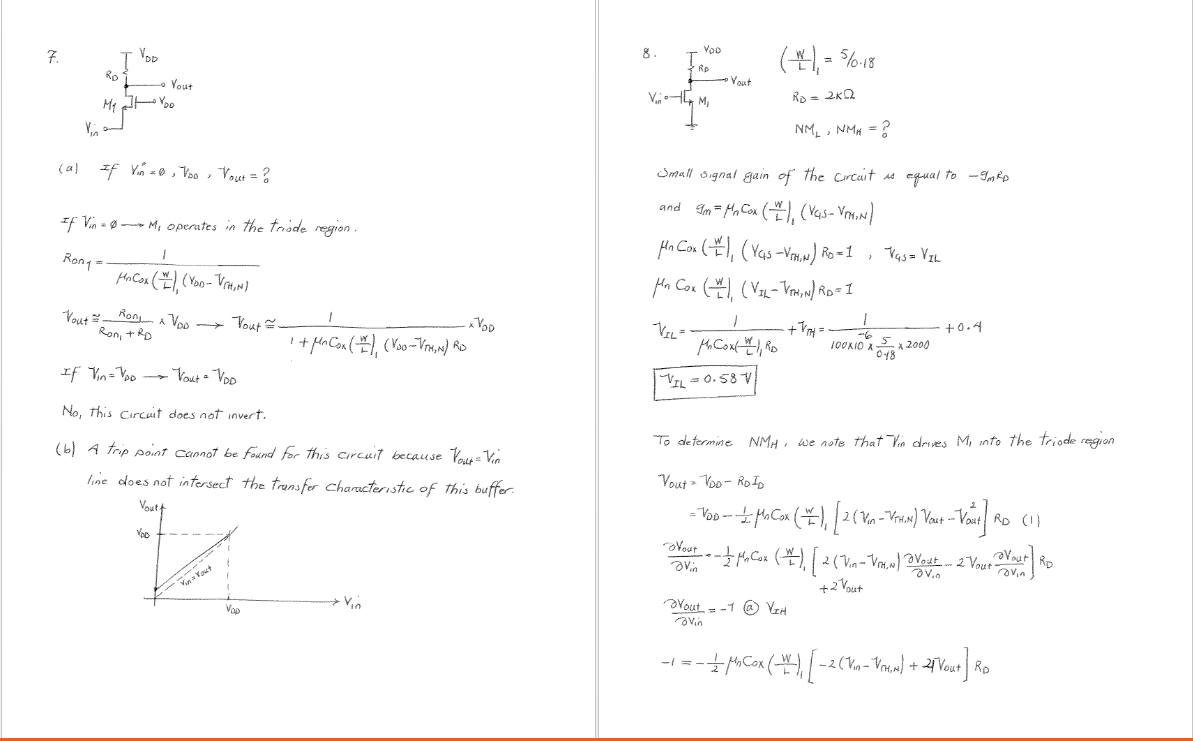 7.
VDD
RD
Vout
M1
VDD
Vin
(a) If Vin = ø , VDD , Vout = ?
If Vin = ø → M1 operates in the triode region.
Ron1 = 1 / μnCox (W/L)1 (VDD - VTH,N)
Vout ≅ Ron1 / (Ron1 + RD) x VDD → Vout ≅ 1 / (1 + μnCox (W/L)1 (VDD - VTH,N) RD) x VDD
If Vin = VDD → Vout = VDD
No, this circuit does not invert.
(b) A trip point cannot be found for this circuit because Vout = Vin
line does not intersect the transfer characteristic of this buffer.
Vout
VDD
Vin = Vout
VDD
Vin
8.
VDD
RD
Vout
Vin
M1
(W/L)1 = 5/0.18
RD = 2KΩ
NML , NMH = ?
Small signal gain of the circuit is equal to -gmRD
and gm = μnCox (W/L)1 (VGS - VTH,N)
μnCox (W/L)1 (VGS - VTH,N) RD = 1 , VGS = VIL
μnCox (W/L)1 (VIL - VTH,N) RD = 1
VIL = 1 / μnCox(W/L)1 RD + VTH = 1 / (100x10^-6 x 5/0.18 x 2000) + 0.4
VIL = 0.58 V
To determine NMH , we note that Vin drives M1 into the triode region
Vout = VDD - RD ID
= VDD - 1/2 μnCox (W/L)1 [2(Vin - VTH,N) Vout - Vout^2] RD (1)
∂Vout/∂Vin = -1/2 μnCox (W/L)1 [2(Vin - VTH,N) ∂Vout/∂Vin - 2Vout ∂Vout/∂Vin] RD
+2Vout
∂Vout/∂Vin = -1 @ VIH
-1 = -1/2 μnCox (W/L)1 [-2(Vin - VTH,N) + 4Vout] RD